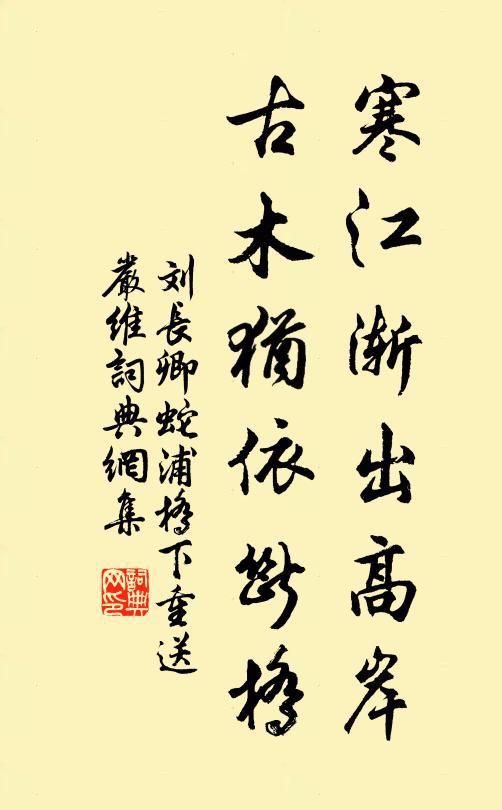 寒江渐出高岸
古木猶依断橋
刘長卿蛇浦橋下重送
嚴維詞典網集
詞典
网印